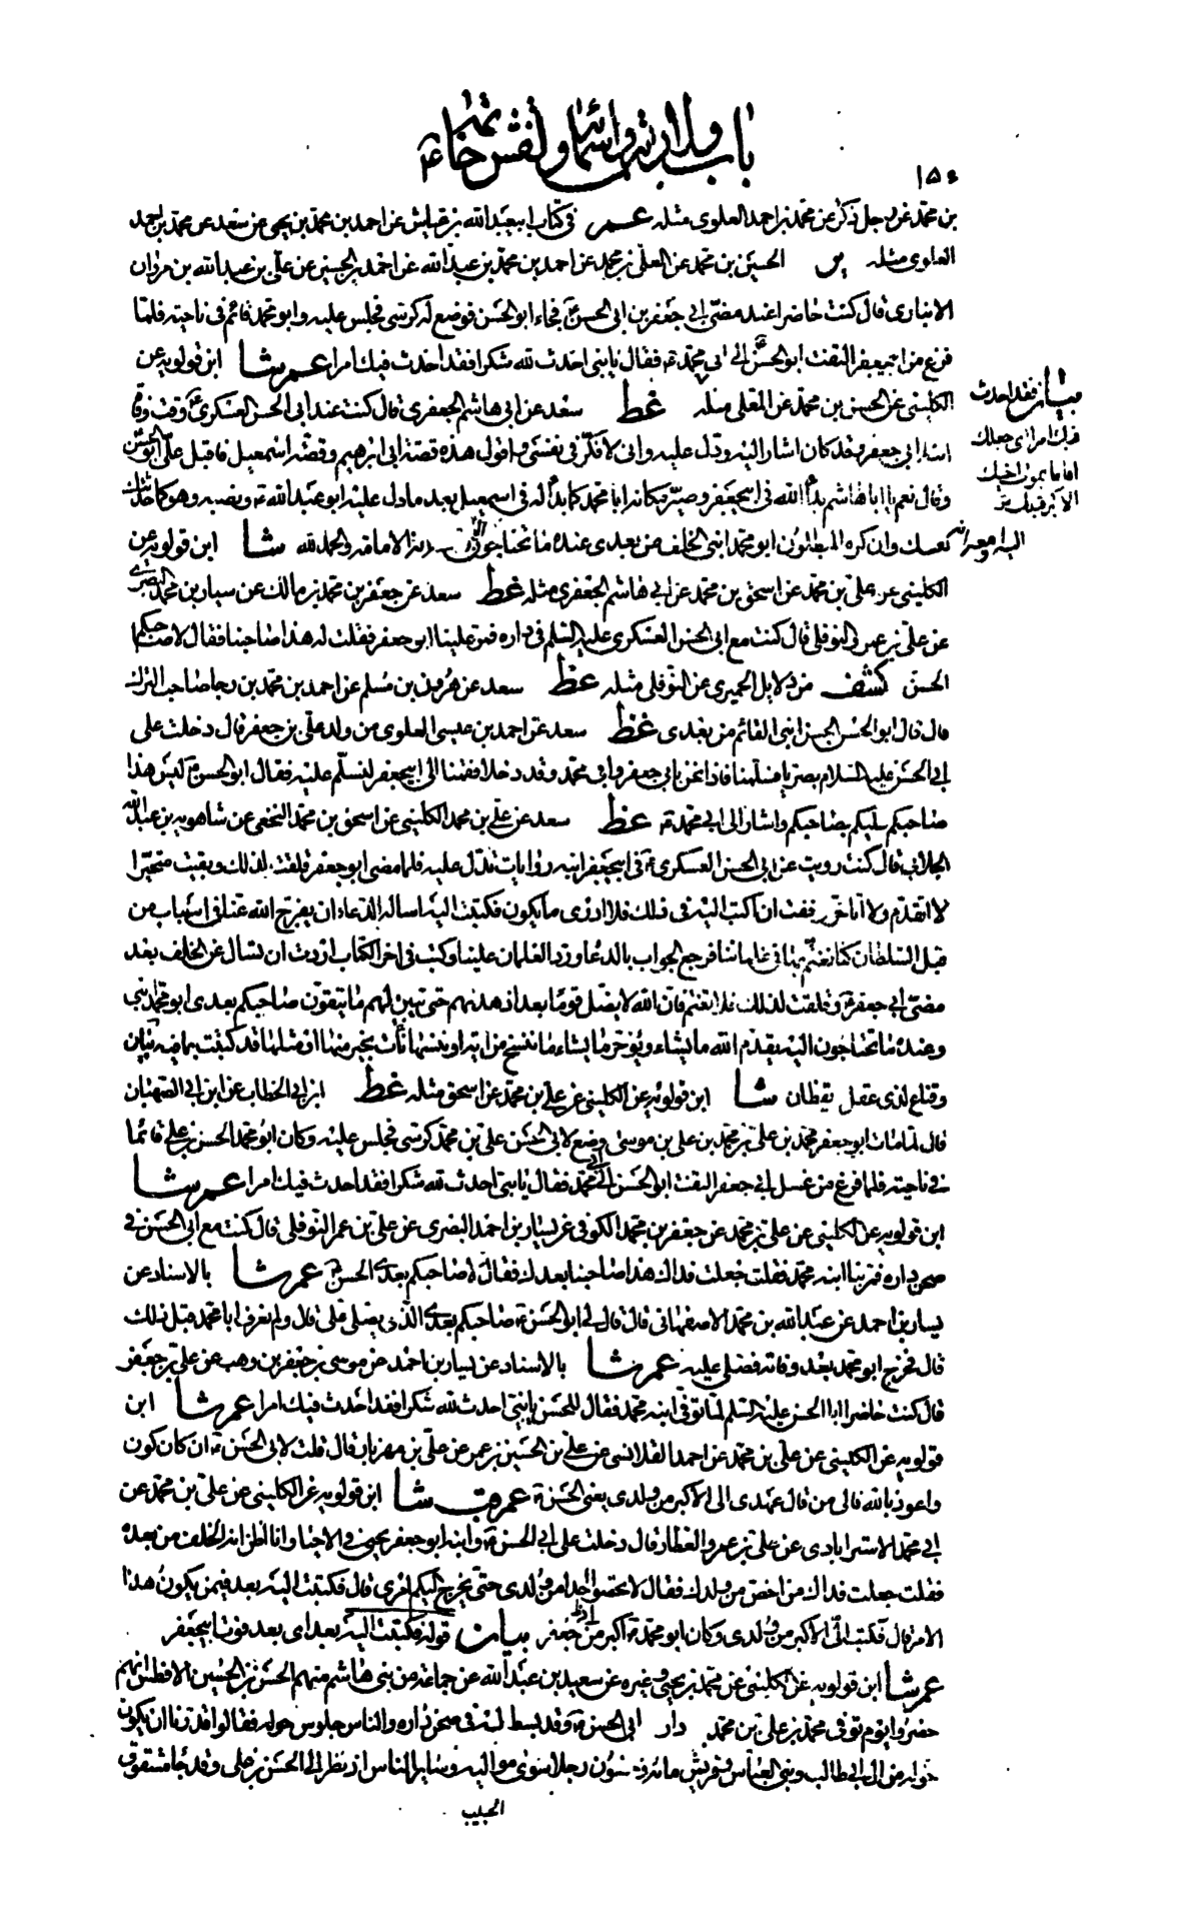 باب ولادته واسمائه ونقش خاتمه
١٥٤
بن محمد عن رجل ذكره عن محمد بن احمد العلوى مثله عمر فى كتاب ابيعبد الله بن عياش عن احمد بن محمد بن يحيى عن سعد عن محمد بن احمد
العلوى مثله ير الحسين بن محمد عن المعلى بن محمد عن احمد بن محمد بن عبد الله عن احمد بن الحسين عن على بن عبد الله بن مروان
الانبارى قال كنت حاضرا عند مضى ابى جعفر بن ابى الحسن ع فجاء ابو الحسن فوضع له كرسى فجلس عليه وابو محمد قائم فى ناحية فلما
فرغ من ابيجعفر التفت ابو الحسن ع الى ابى محمد ع فقال يا بنى احدث لله شكرا فقد احدث فيك امرا عم شا ابن قولويه عن
الكلينى عن الحسين بن محمد عن المعلى مثله غط سعد عن ابى هاشم الجعفرى قال كنت عند ابى الحسن العسكرى ع وقت وفاة
ابنه ابى جعفر وقد كان اشار اليه ودل عليه وانى لافكر فى نفسى واقول هذه قصة ابى ابرهيم وقصة اسمعيل فاقبل على ابو الحسن
وقال نعم يا ابا هاشم بدا لله فى ابيجعفر وصير مكانه ابا محمد كما بدا له فى اسمعيل بعد ما دل عليه ابو عبد الله ع ونصبه وهو كما حدثتك
نفسك وان كره المبطلون ابو محمد ابنى الخلف من بعدى عنده ما تحتاجون اليه ومعه آلة الامامة والحمد لله شا ابن قولويه عن
الكلينى عن على بن محمد عن اسحق بن محمد عن ابى هاشم الجعفرى مثله غط سعد عن جعفر بن محمد بن مالك عن سيار بن محمد البصرى
عن على بن عمر النوفلى قال كنت مع ابى الحسن العسكرى عليه السلم فى داره فمر علينا ابو جعفر فقلت له هذا صاحبنا فقال لا صاحبكم
الحسن كشف من دلايل الحميرى عن النوفلى مثله غط سعد عن هرون بن مسلم عن احمد بن محمد بن رجا صاحب الترك
قال قال ابو الحسن الحسن ابنى القائم من بعدى غط سعد عن احمد بن عيسى العلوى من ولد على بن جعفر قال دخلت على
ابى الحسن عليه السلام بصريا فسلمنا فاذا نحن بابى جعفر وابى محمد وقد دخلا فقمنا الى ابيجعفر لنسلم عليه فقال ابو الحسن ع ليس هذا
صاحبكم عليكم بصاحبكم واشار الى ابى محمد ع غط سعد عن على بن محمد الكلينى عن اسحق بن محمد النخعى عن شاهويه بن عبد الله
الجلابى قال كنت رويت عن ابى الحسن العسكرى ع فى ابيجعفر ابنه روايات تدل عليه فلما مضى ابو جعفر قلقت لذلك وبقيت متحيرا
لا اتقدم ولا اتاخر وخفت ان اكتب اليه فى ذلك فلا ادرى ما يكون فكتبت اليه اساله الدعاء ان يفرج الله عنا فى اسباب من
قبل السلطان كنا نغتم بها فى غلماننا فرجع الجواب بالدعا ورد الغلمان علينا وكتب فى اخر الكتاب اردت ان تسال عن الخلف بعد
مضى ابى جعفر ع وقلقت لذلك فلا تغتم فان الله لا يضل قوما بعد اذ هديهم حتى يبين لهم ما يتقون صاحبكم بعدى ابو محمد ابنى
وعنده ما تحتاجون اليه يقدم الله ما يشاء ويؤخر ما يشاء ما ننسخ من اية او ننسها نات بخير منها او مثلها قد كتبت بما فيه تبيان
وقناع لذى عقل يقظان شا ابن قولويه عن الكلينى عن على بن محمد عن اسحق مثله غط ابن ابى الخطاب عن ابن ابى الصهبان
قال لما مات ابو جعفر محمد بن على بن محمد بن على بن موسى وضع لابى الحسن على بن محمد كرسى فجلس عليه وكان ابو محمد الحسن بن على قائما
فى ناحية فلما فرغ من غسل ابى جعفر التفت ابو الحسن الى ابى محمد فقال يا بنى احدث لله شكرا فقد احدث فيك امرا عم شا
ابن قولويه عن الكلينى عن على بن محمد عن جعفر بن محمد الكوفى عن يسار بن احمد البصرى عن على بن عمر النوفلى قال كنت مع ابى الحسن فى
صحن داره فمر بنا ابنه محمد فقلت جعلت فداك هذا صاحبنا بعدك فقال لا صاحبكم بعدى الحسن عم شا بالاسناد عن
يسار بن احمد عن عبد الله بن محمد الاصفهانى قال قال لى ابو الحسن ع صاحبكم بعدى الذى يصلى على قال ولم نعرف ابا محمد قبل ذلك
قال فخرج ابو محمد بعد وفاته فصلى عليه عم شا بالاسناد عن يسار بن احمد عن موسى بن جعفر بن وهب عن على بن جعفر
قال كنت حاضرا ابا الحسن عليه السلم لما توفى ابنه محمد فقال للحسن يا بنى احدث لله شكرا فقد احدث فيك امرا عم شا ابن
قولويه عن الكلينى عن على بن محمد عن احمد القلانسى عن على بن الحسين بن عمر عن على بن مهزيار قال قلت لابى الحسن ع ان كان كون
واعوذ بالله فالى من قال عهدى الى الاكبر من ولدى يعنى الحسن ع عم شا ابن قولويه عن الكلينى عن على بن محمد عن
ابى محمد الاسترابادى عن على بن عمرو العطار قال دخلت على ابى الحسن ع وابنه ابو جعفر يحيى فى الاحيا وانا اظن انه الخلف من بعده
فقلت جعلت فداك من اخص من ولدك فقال لا تخصوا احدا من ولدى حتى يخرج اليكم امرى قال فكتبت اليه بعد فيمن يكون هذا
الامر قال فكتب الى الاكبر من ولدى وكان ابو محمد ع اكبر من جعفر بيان قوله فكتبت اليه بعد اى بعد فوت ابيجعفر
عم شا ابن قولويه عن الكلينى عن محمد بن يحيى وغيره عن سعيد بن عبد الله عن جماعة من بنى هاشم منهم الحسن بن الحسين الافطس انهم
حضروا يوم توفى محمد بن على بن محمد دار ابى الحسن ع وقد بسط له فى صحن داره والناس جلوس حوله فقالوا قدرنا ان يكون
حوله من ال ابى طالب وبنى العباس وقريش مائة وخمسون رجلا سوى مواليه وساير الناس اذ نظر الى الحسن بن على وقد جا مشقوق
الجيب
بيان فقد احدث
فيك امرا اى جعلك
اماما بموت اخيك
الاكبر قبلك